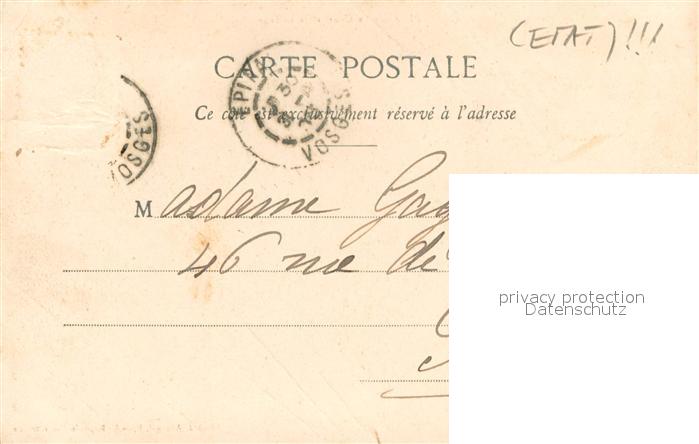 (ETAT)!!!
CARTE POSTALE
Ce côté est exclusivement réservé à l'adresse
EPIN
VOSGES
OSGES
Madame
46 rue de
privacy protection
Datenschutz